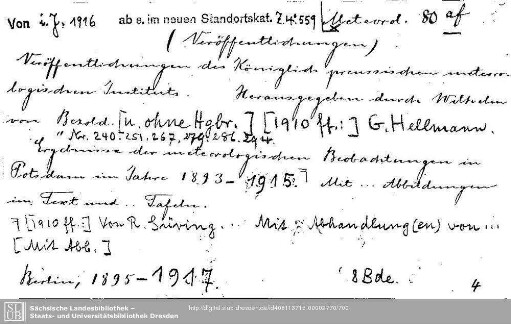 Von i. J. 1916 ab e. im neuen Standortskat. Z. 4° 559 Meteorol. 80 af
(Veröffentlichungen)
Veröffentlichungen des Königlich preussischen meteoro-
logischen Instituts. Herausgegeben durch Wilhelm
von Bezold. [u. ohne Hgbr.] [1910 ff.:] G. Hellmann.
" Nr. 240-251. 267. 279. 286. 294.
Ergebnisse der meteorologischen Beobachtungen in
Potsdam im Jahre 1893-1915. Mit ... Abbildungen
im Text und .. Tafeln.
[1910 ff.:] Von R. Süring. ... Mit Abhandlung(en) von ...
[Mit Abb.]
Berlin, 1895-1917. 8 Bde.
4
Sächsische Landesbibliothek –
Staats- und Universitätsbibliothek Dresden